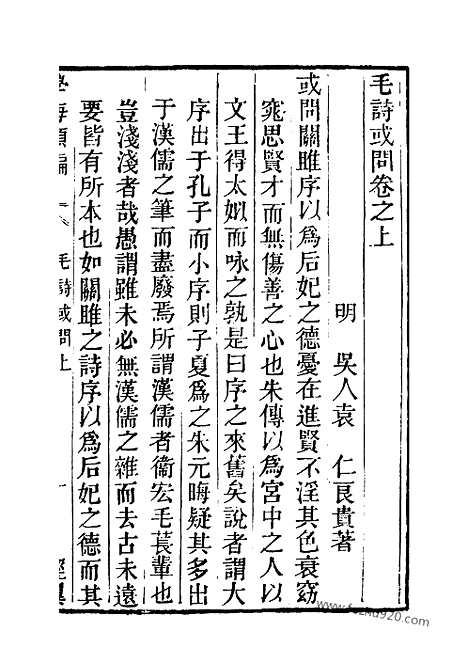 毛詩或問卷之上
明 吳人袁 仁良貴著
或問關雎序以爲后妃之德憂在進賢不淫其色哀窈
窕思賢才而無傷善之心也朱傳以爲宮中之人以
文王得太姒而咏之孰是曰序之來舊矣說者謂大
序出于孔子而小序則子夏爲之朱元晦疑其多出
于漢儒之筆而盡廢焉所謂漢儒者衞宏毛萇輩也
豈淺淺者哉愚謂雖未必無漢儒之雜而去古未遠
要皆有所本也如關雎之詩序以爲后妃之德而其
學海類編 毛詩或問上 一